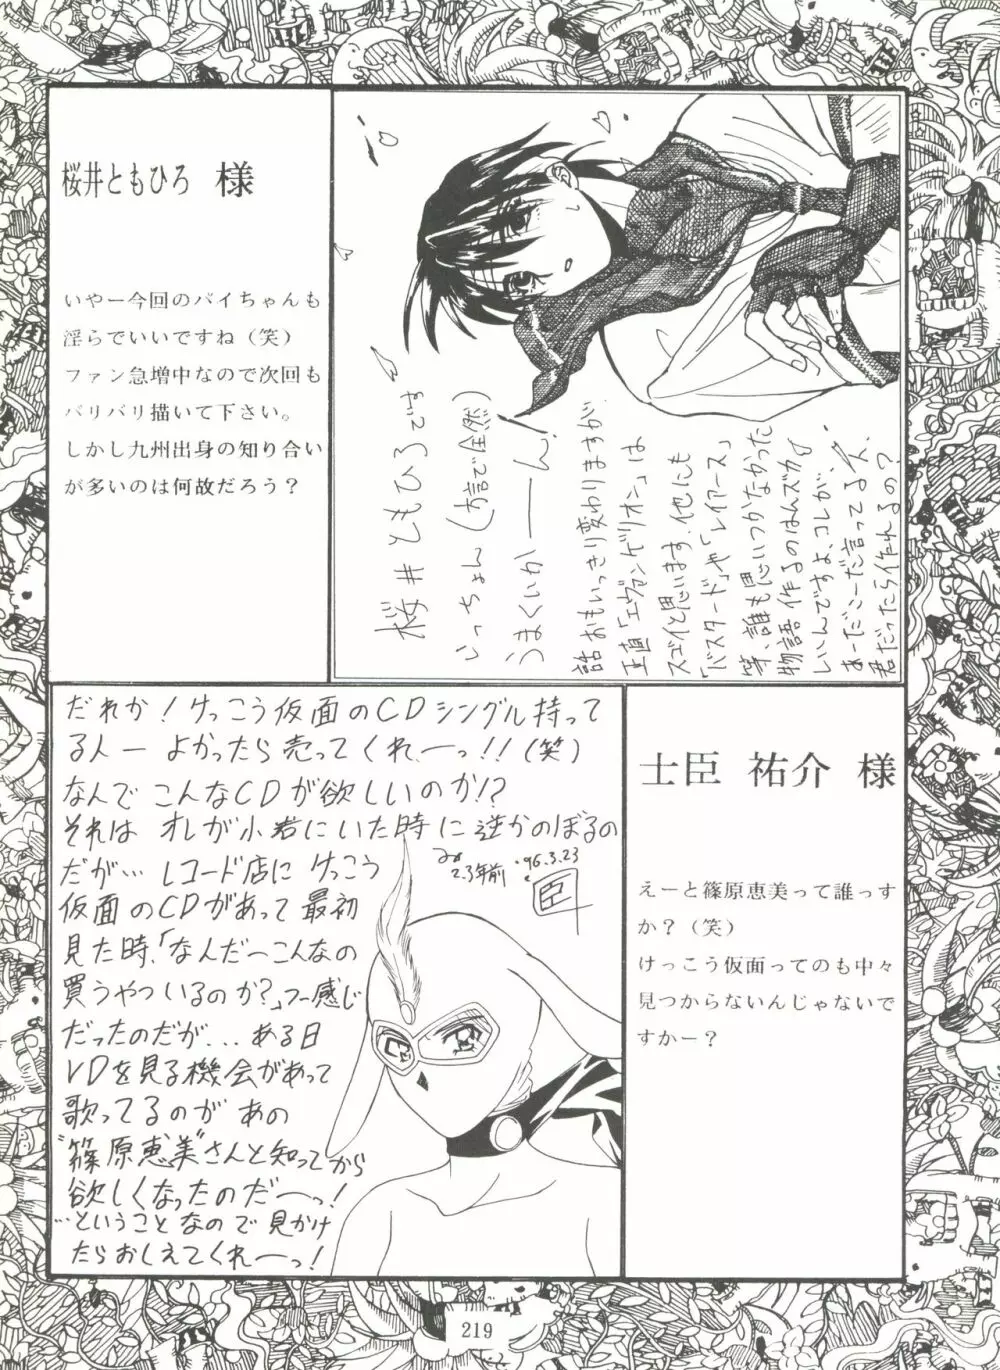 桜井ともひろ 様
いやー今回のバイちゃんも
淫らでいいですね(笑)
ファン急増中なので次回も
バリバリ描いて下さい。
しかし九州出身の知り合い
が多いのは何故だろう?
桜井ともひろです
いっちょん(方言で全然)
うまくいかーーん、
話おもいっきり変わりますが
正直「エヴァンゲリオン」は
スゴイと思います、他にも
「バスタード」や「レイアース」
等、誰も思いつかなかった
物語作るのはムズカシ
いいんですよ、コレが、
あーだこーだ言ってる人、
君だったら作れるの?
だれか!けっこう仮面のCDシングル持って
る人ー よかったら売ってくれーっ!!(笑)
なんで こんなCDが欲しいのか!?
それは オレが小岩にいた時に逆かのぼるの
だが… レコード店に けっこう
仮面のCDがあって 最初
見た時、「なんだーこんなの
買うやついるのか?」っつー感じ
だったのだが... ある日
LDを見る機会があって
歌ってるのが あの
"篠原恵美"さんと知ってから
欲しくなったのだーっ!
…ということなので 見かけ
たらおしえてくれーっ!
2.3年前
'96.3.23
臣
士臣 祐介 様
えーと篠原恵美って誰っす
か?(笑)
けっこう仮面ってのも中々
見つからないんじゃないで
すかー?
219